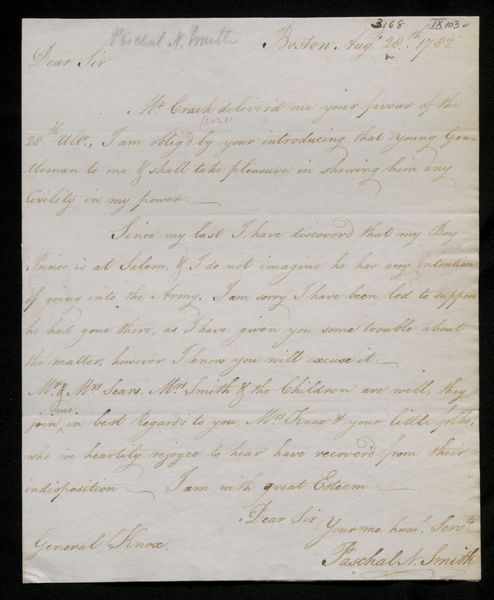 3168 IX 103
Paschal N. Smith
Boston Augt. 28.th 1782
Dear Sir
Mr. Craik deliver'd me your favour of the
28.th Ulto., I am oblig'd by your introducing that Young Gen-
tleman to me & shall take pleasure in shewing him any
Civility in my power
Since my last I have discover'd that my Boy
Prince is at Salem, & I do not imagine he has any intention
of going into the Army. I am sorry I have been led to suppose
he had gone there, as I have given you some trouble about
the matter, however I know you will excuse it
Mr. & Mrs Sears, Mrs Smith & the Children are well, they
join me in best Regards to you, Mrs Knox & your little folks,
who we heartily rejoyce to hear have recover'd from their
indisposition I am with great Esteem
Dear Sir
Your mo. huml. Servt.
General Knox. Paschal N. Smith